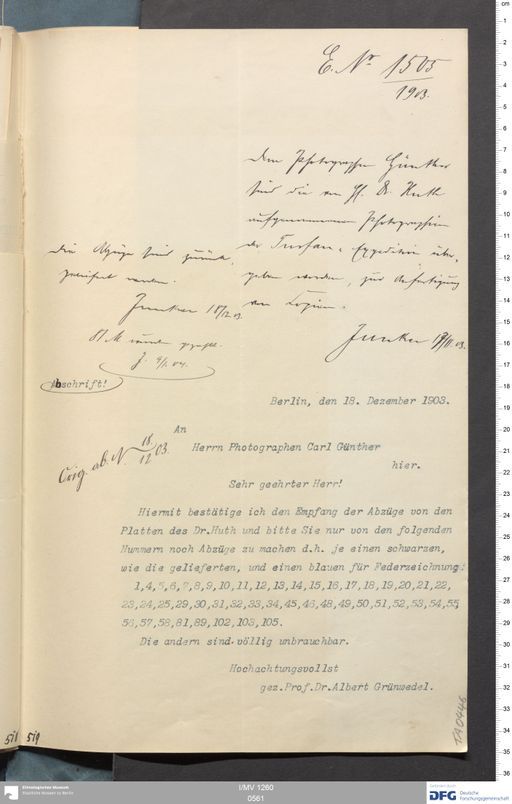 E. Nr 1505
1903.
Dem Photographen Günther
sind die von H. Dr. Huth
aufgenommenen Photographien
der Turfan-Expedition über-
geben worden, zur Anfertigung
von Copien.
Junker 19/11.03.
Die Abzüge sind zurück-
geliefert worden.
Junker 18/12.03.
81 M wurden gezahlt.
J. 9/1.04.
Abschrift!
Berlin, den 18. Dezember 1903.
Orig. ab. N. 18/12 03.
An
Herrn Photographen Carl Günther
hier.
Sehr geehrter Herr!
Hiermit bestätige ich den Empfang der Abzüge von den
Platten des Dr.Huth und bitte Sie nur von den folgenden
Nummern noch Abzüge zu machen d.h. je einen schwarzen,
wie die gelieferten, und einen blauen für Federzeichnung:
1,4,5,6,7,8,9,10,11,12,13,14,15,16,17,18,19,20,21,22,
23,24,25,29,30,31,32,33,34,45,46,48,49,50,51,52,53,54,55,
56,57,58,81,89,102,103,105.
Die andern sind völlig unbrauchbar.
Hochachtungsvollst
gez.Prof.Dr.Albert Grünwedel.
TA0446
518 519
Ethnologisches Museum
Staatliche Museen zu Berlin
I/MV 1260
0561
DFG Deutsche
Forschungsgemeinschaft